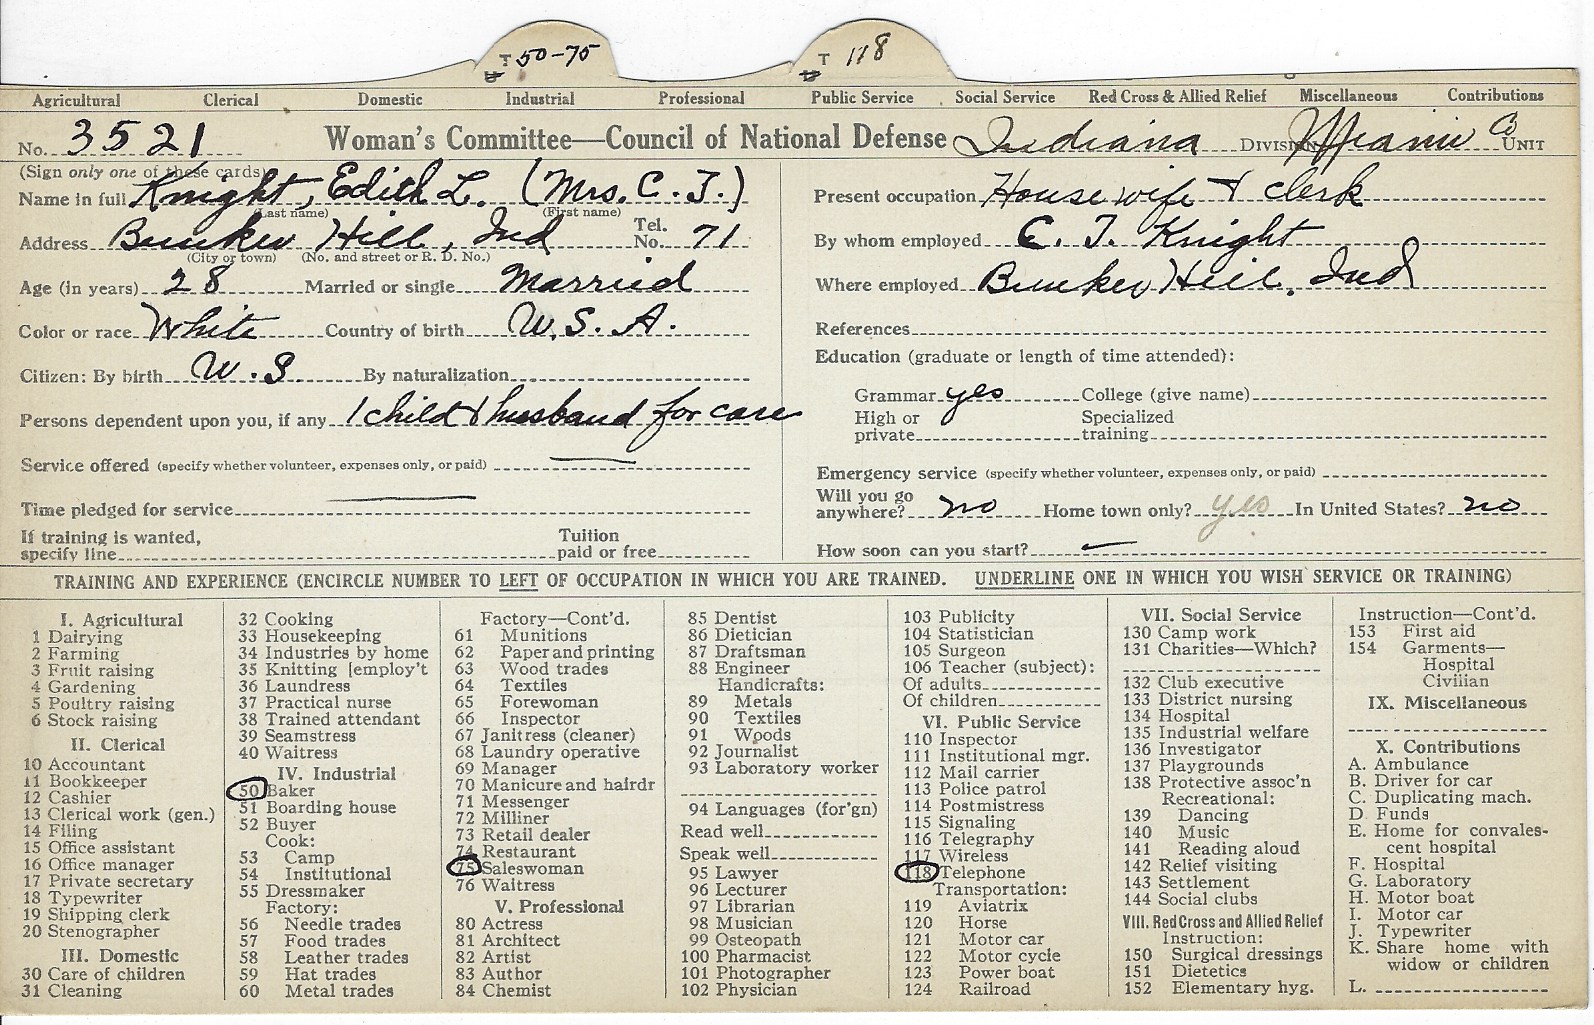 T 50-75 T 118
Agricultural Clerical Domestic Industrial Professional Public Service Social Service Red Cross & Allied Relief Miscellaneous Contributions
No. 3521 Woman's Committee—Council of National Defense Indiana DIVISION Miami Co UNIT
(Sign only one of these cards)
Name in full Knight, Edith L. (Mrs. C. J.)
(Last name) (First name)
Address Bunker Hill, Ind Tel. No. 71
(City or town) (No. and street or R. D. No.)
Age (in years) 28 Married or single Married
Color or race White Country of birth U.S.A.
Citizen: By birth U.S By naturalization
Persons dependent upon you, if any 1 child & husband for care
Service offered (specify whether volunteer, expenses only, or paid)
Time pledged for service
If training is wanted,
specify line
Tuition
paid or free
Present occupation Housewife & clerk
By whom employed C. J. Knight
Where employed Bunker Hill, Ind
References
Education (graduate or length of time attended):
Grammar yes College (give name)
High or
private
Specialized
training
Emergency service (specify whether volunteer, expenses only, or paid)
Will you go
anywhere? no Home town only? yes In United States? no
How soon can you start?
TRAINING AND EXPERIENCE (ENCIRCLE NUMBER TO LEFT OF OCCUPATION IN WHICH YOU ARE TRAINED. UNDERLINE ONE IN WHICH YOU WISH SERVICE OR TRAINING)
I. Agricultural
1 Dairying
2 Farming
3 Fruit raising
4 Gardening
5 Poultry raising
6 Stock raising
II. Clerical
10 Accountant
11 Bookkeeper
12 Cashier
13 Clerical work (gen.)
14 Filing
15 Office assistant
16 Office manager
17 Private secretary
18 Typewriter
19 Shipping clerk
20 Stenographer
III. Domestic
30 Care of children
31 Cleaning
32 Cooking
33 Housekeeping
34 Industries by home
35 Knitting [employ't
36 Laundress
37 Practical nurse
38 Trained attendant
39 Seamstress
40 Waitress
IV. Industrial
50 Baker
51 Boarding house
52 Buyer
Cook:
53 Camp
54 Institutional
55 Dressmaker
Factory:
56 Needle trades
57 Food trades
58 Leather trades
59 Hat trades
60 Metal trades
Factory—Cont'd.
61 Munitions
62 Paper and printing
63 Wood trades
64 Textiles
65 Forewoman
66 Inspector
67 Janitress (cleaner)
68 Laundry operative
69 Manager
70 Manicure and hairdr
71 Messenger
72 Milliner
73 Retail dealer
74 Restaurant
75 Saleswoman
76 Waitress
V. Professional
80 Actress
81 Architect
82 Artist
83 Author
84 Chemist
85 Dentist
86 Dietician
87 Draftsman
88 Engineer
Handicrafts:
89 Metals
90 Textiles
91 Woods
92 Journalist
93 Laboratory worker
94 Languages (for'gn)
Read well
Speak well
95 Lawyer
96 Lecturer
97 Librarian
98 Musician
99 Osteopath
100 Pharmacist
101 Photographer
102 Physician
103 Publicity
104 Statistician
105 Surgeon
106 Teacher (subject):
Of adults
Of children
VI. Public Service
110 Inspector
111 Institutional mgr.
112 Mail carrier
113 Police patrol
114 Postmistress
115 Signaling
116 Telegraphy
117 Wireless
118 Telephone
Transportation:
119 Aviatrix
120 Horse
121 Motor car
122 Motor cycle
123 Power boat
124 Railroad
VII. Social Service
130 Camp work
131 Charities—Which?
132 Club executive
133 District nursing
134 Hospital
135 Industrial welfare
136 Investigator
137 Playgrounds
138 Protective assoc'n
Recreational:
139 Dancing
140 Music
141 Reading aloud
142 Relief visiting
143 Settlement
144 Social clubs
VIII. Red Cross and Allied Relief
Instruction:
150 Surgical dressings
151 Dietetics
152 Elementary hyg.
Instruction—Cont'd.
153 First aid
154 Garments—
Hospital
Civilian
IX. Miscellaneous
X. Contributions
A. Ambulance
B. Driver for car
C. Duplicating mach.
D. Funds
E. Home for convales-
cent hospital
F. Hospital
G. Laboratory
H. Motor boat
I. Motor car
J. Typewriter
K. Share home with
widow or children
L.